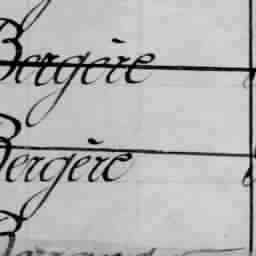 Bergère
Bergère